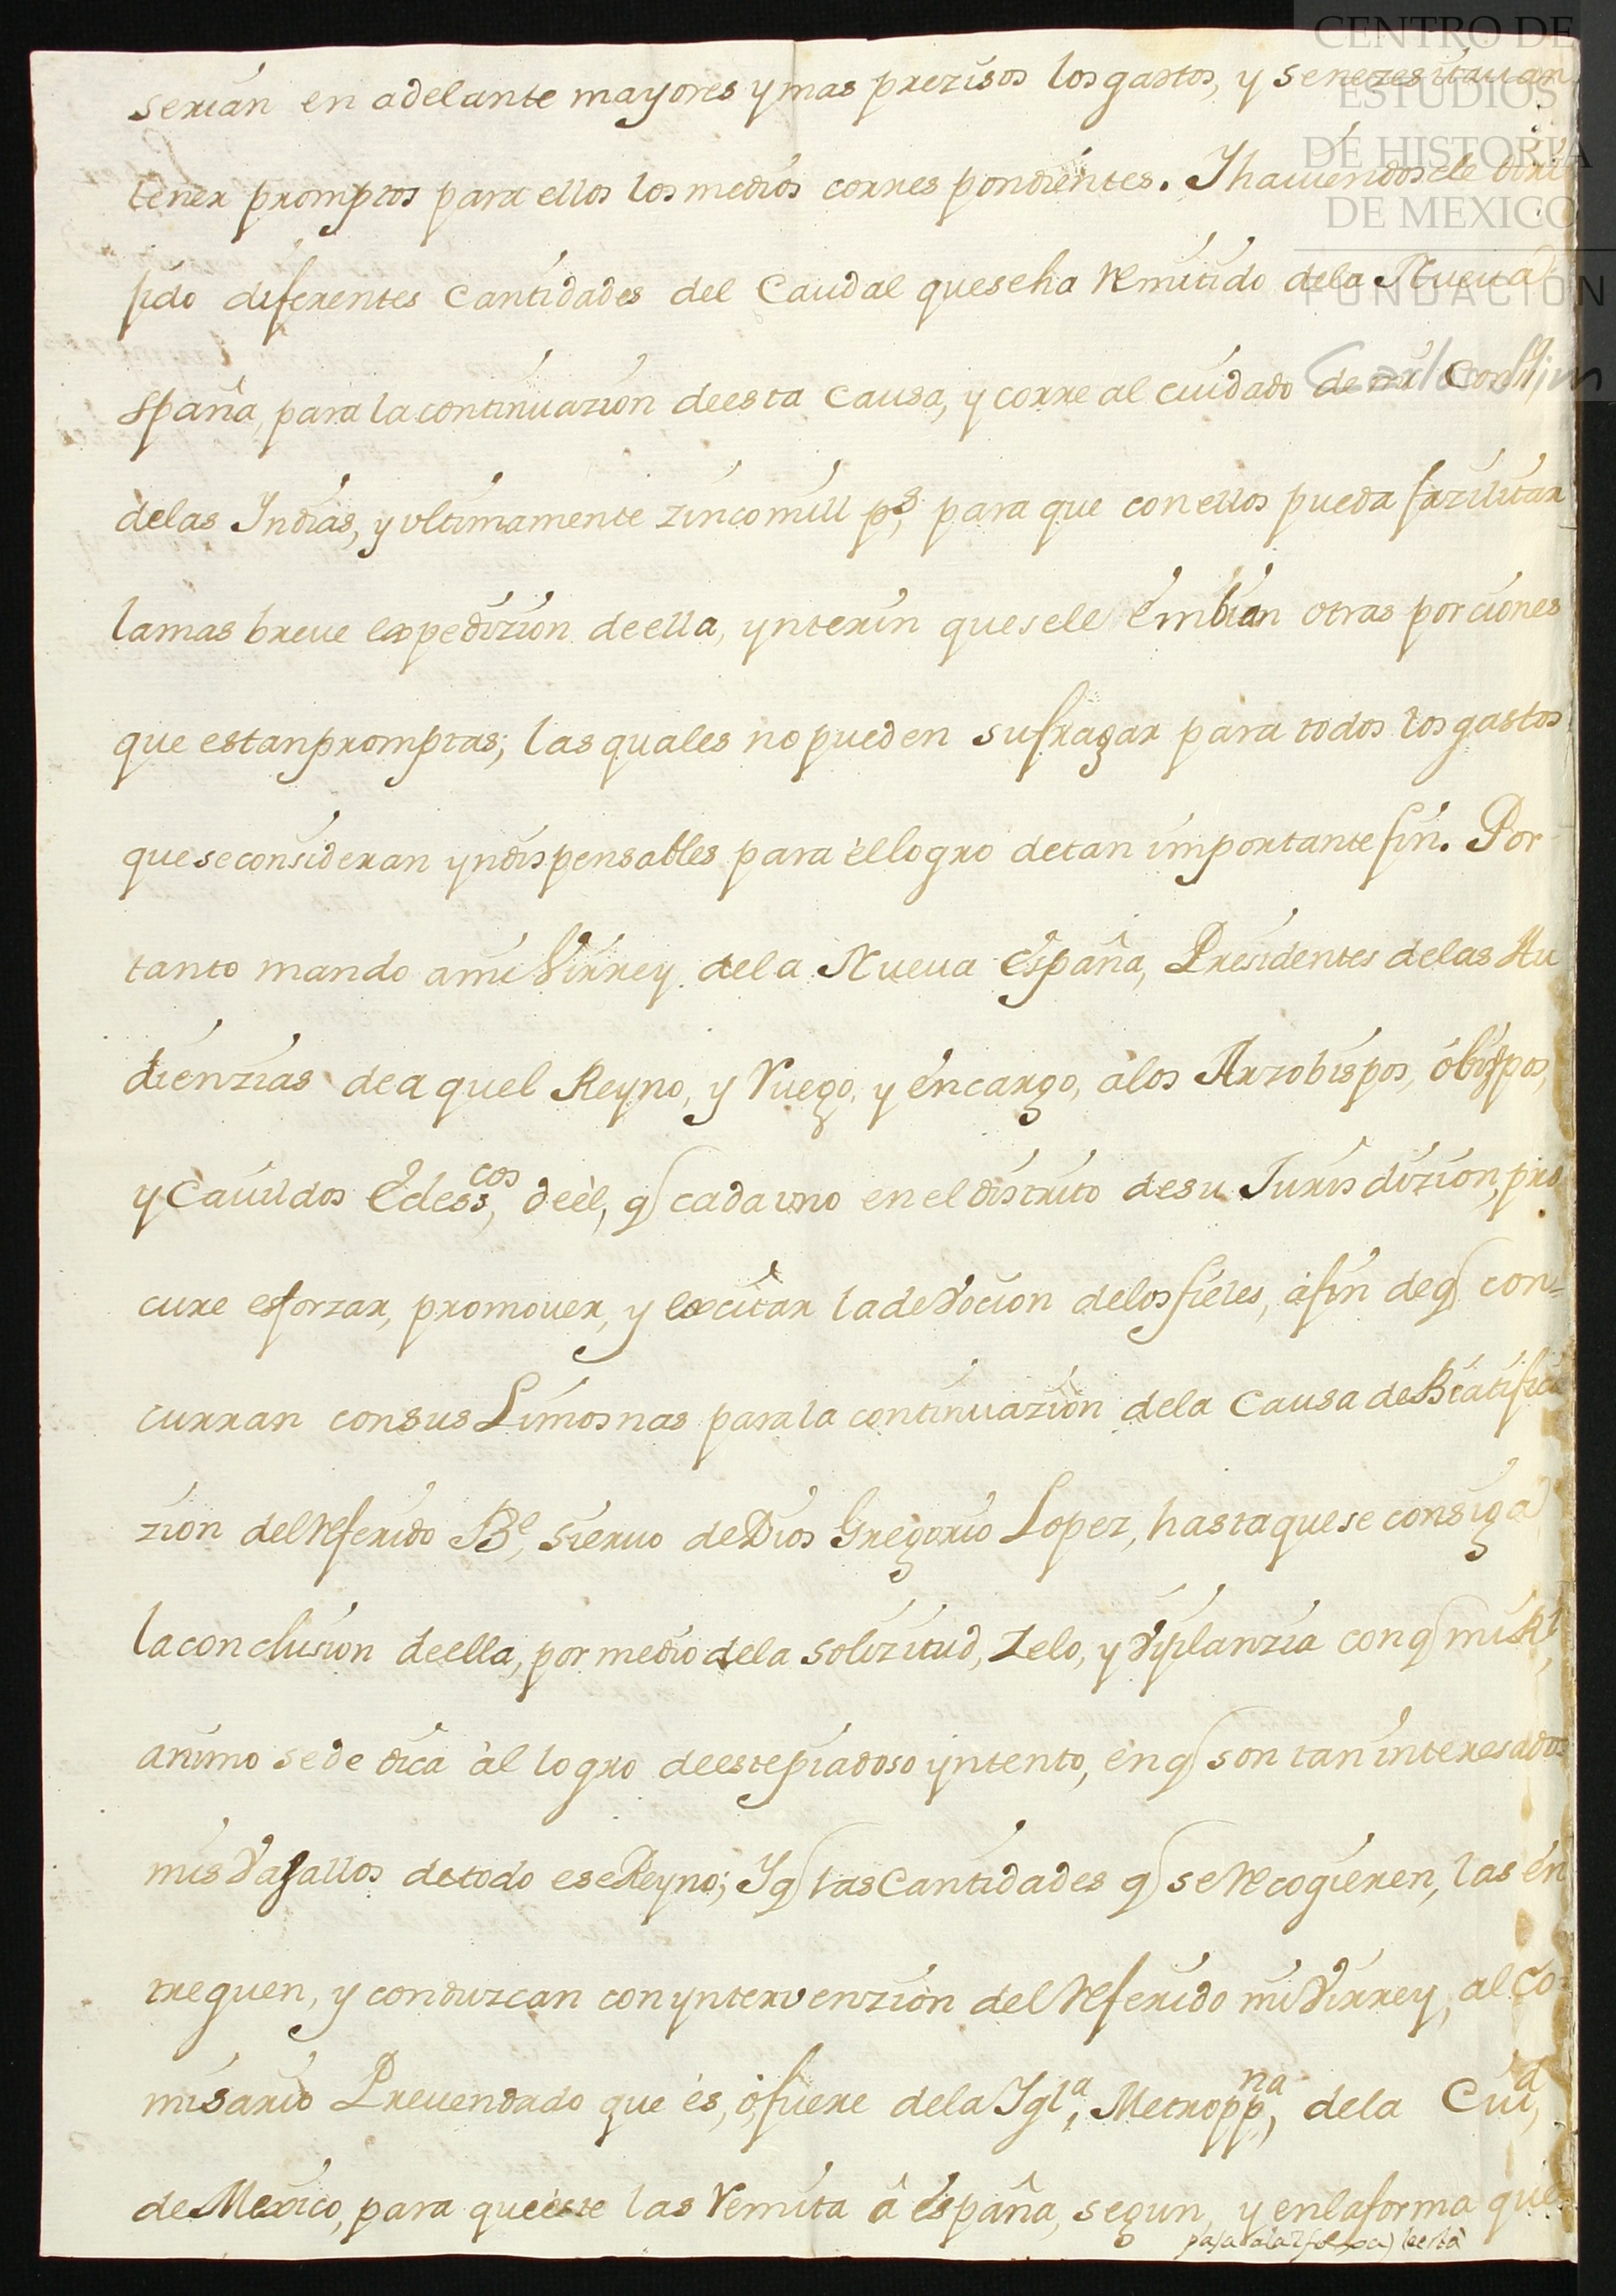 CENTRO DE
ESTUDIOS
DE HISTORIA
DE MEXICO
FUNDACIÓN
Carlos Slim
serian en adelante mayores y mas prezisos los gastos, y se nezesitauan
tener promptos para ellos los medios correspondientes. I hauiendosele
do diferentes Cantidades del Caudal que se ha remitido de la Nueua
España, para la continuazion de esta Causa, y corre al cuidado de mi Consejo
de las Indias, y vltimamente zinco mill ps, para que con ellos pueda fazilitar
la mas breue expedizion de ella, ynterin que se le émbian otras porciones
que estan promptas; las quales no pueden sufragar para todos los gastos
que se consideran yndispensables para èl logro de tan importante fin. Por
tanto mando a mi Virrey de la Nueua España, Presidentes de las Au
dienzias de aquel Reyno, y Ruego, y éncargo, à los Arzobispos, óbispos,
y Cauildos Ecless,cos de èl, q cada vno en el distrito de su Jurisdizion, pro
cure esforzar, promouer, y excitar la deVocion de los fieles, à fin de q con=
curran con sus Limosnas para la continuazion de la Causa de Beatifica
zion del referido Be, sieruo de Dios Gregorio Lopez, hasta que se consiga
la conclusion de ella, por medio de la solizitud, zelo, y Vigilanzia con q mi Rl,
animo se dedica àl logro de este piadoso yntento, én q son tan interesados
mis Vasallos de todo ese Reyno; I q las Cantidades q se recogieren, las én
treguen, y conduzcan con yntervenzion del referido mi Virrey, al Co=
misario Preuendado que és, ó fuere de la Igla, Metropp,na de la Ciud,
de Mexico, para que èste las remita â españa, segun, y en la forma que